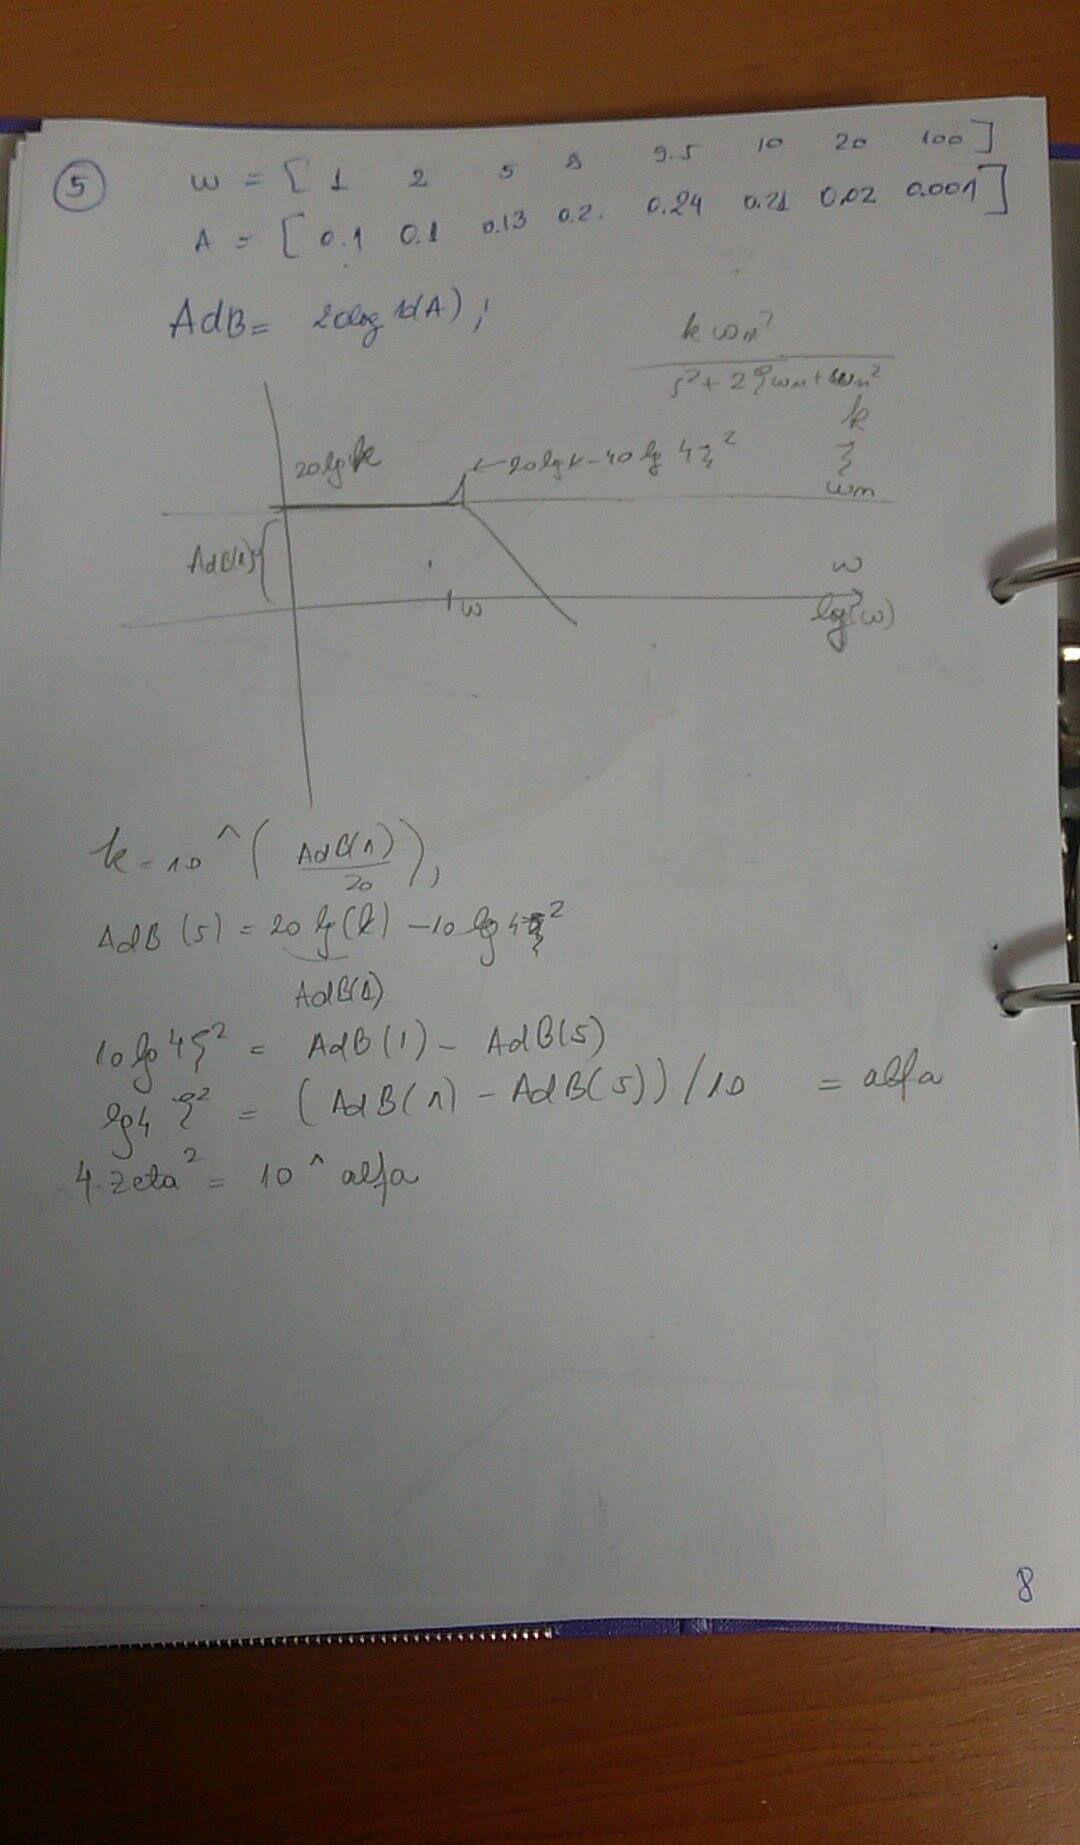 5
w = [ 1 2 5 8 9.5 10 20 100 ]
A = [ 0.1 0.1 0.13 0.2. 0.24 0.21 0.02 0.001 ]
AdB = 20log10(A) ;
k ωn²
s² + 2ξωn + ωn²
k
ξ
ωn
20lg k
← 20lgk - 40 lg 4ξ²
AdB(1)
ω
w
log(ω)
k = 10 ^ ( AdB(1) / 20 ) ;
AdB (5) = 20 lg(k) - 10 lg 4ξ²
AdB(1)
10 lg 4ξ² = AdB(1) - AdB(5)
lg4 ξ² = (AdB(1) - AdB(5)) / 10 = alfa
4.zeta² = 10 ^ alfa
8